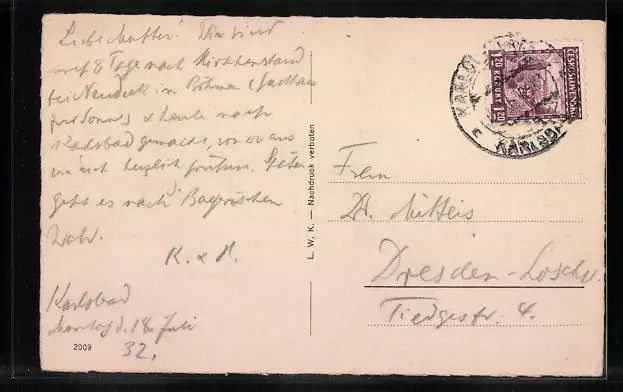 Liebe Mutter! Wir sind
auf 8 Tage nach Hirschenstand
bei Neudek in Böhmen
heute nach
Karlsbad gemacht, von wo aus
wir dich herzlich grüssen.
geht es nach Bayerischen
K. & M.
Karlsbad
Montag d. 18. Juli
32.
2009
L. W. K. — Nachdruck verboten
ČESKOSLOVENSKO
1·20 KORUNY 1·20
KARLOVY VARY
KARLSBAD
Frau
Dr. Mitteis
Dresden-Loschw.
Tiedgestr. 4.